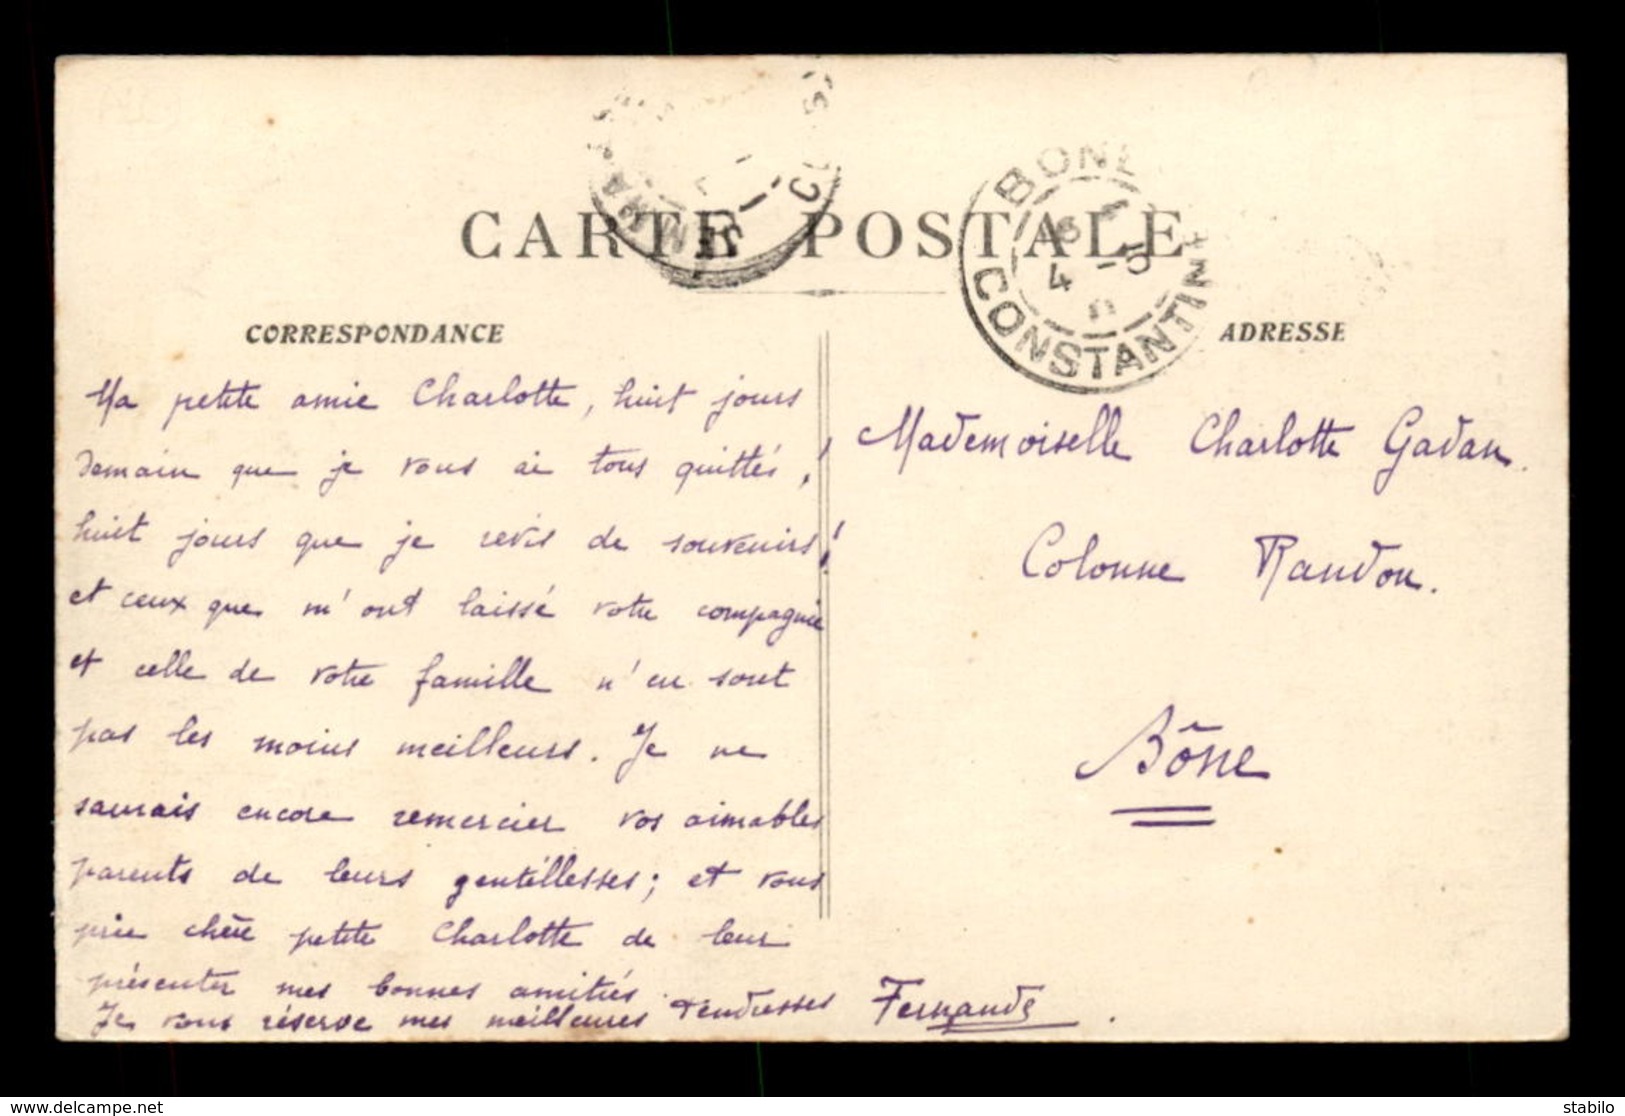 CARTE POSTALE
CORRESPONDANCE
Ma petite amie Charlotte, huit jours
demain que je vous ai tous quittés,!
huit jours que je revis de souvenirs!
et ceux que m'ont laissé votre compagnie
et celle de votre famille n'en sont
pas les moins meilleurs. Je ne
saurais encore remercier vos aimables
parents de leurs gentillesses; et vous
prie chère petite Charlotte de leur
présenter mes bonnes amitiés.
Je vous réserve mes meilleures tendresses Fernande.
BONE
CONSTANTINE
ADRESSE
Mademoiselle Charlotte Gadan.
Colonne Randon.
Bône
delcampe.net
stabilo